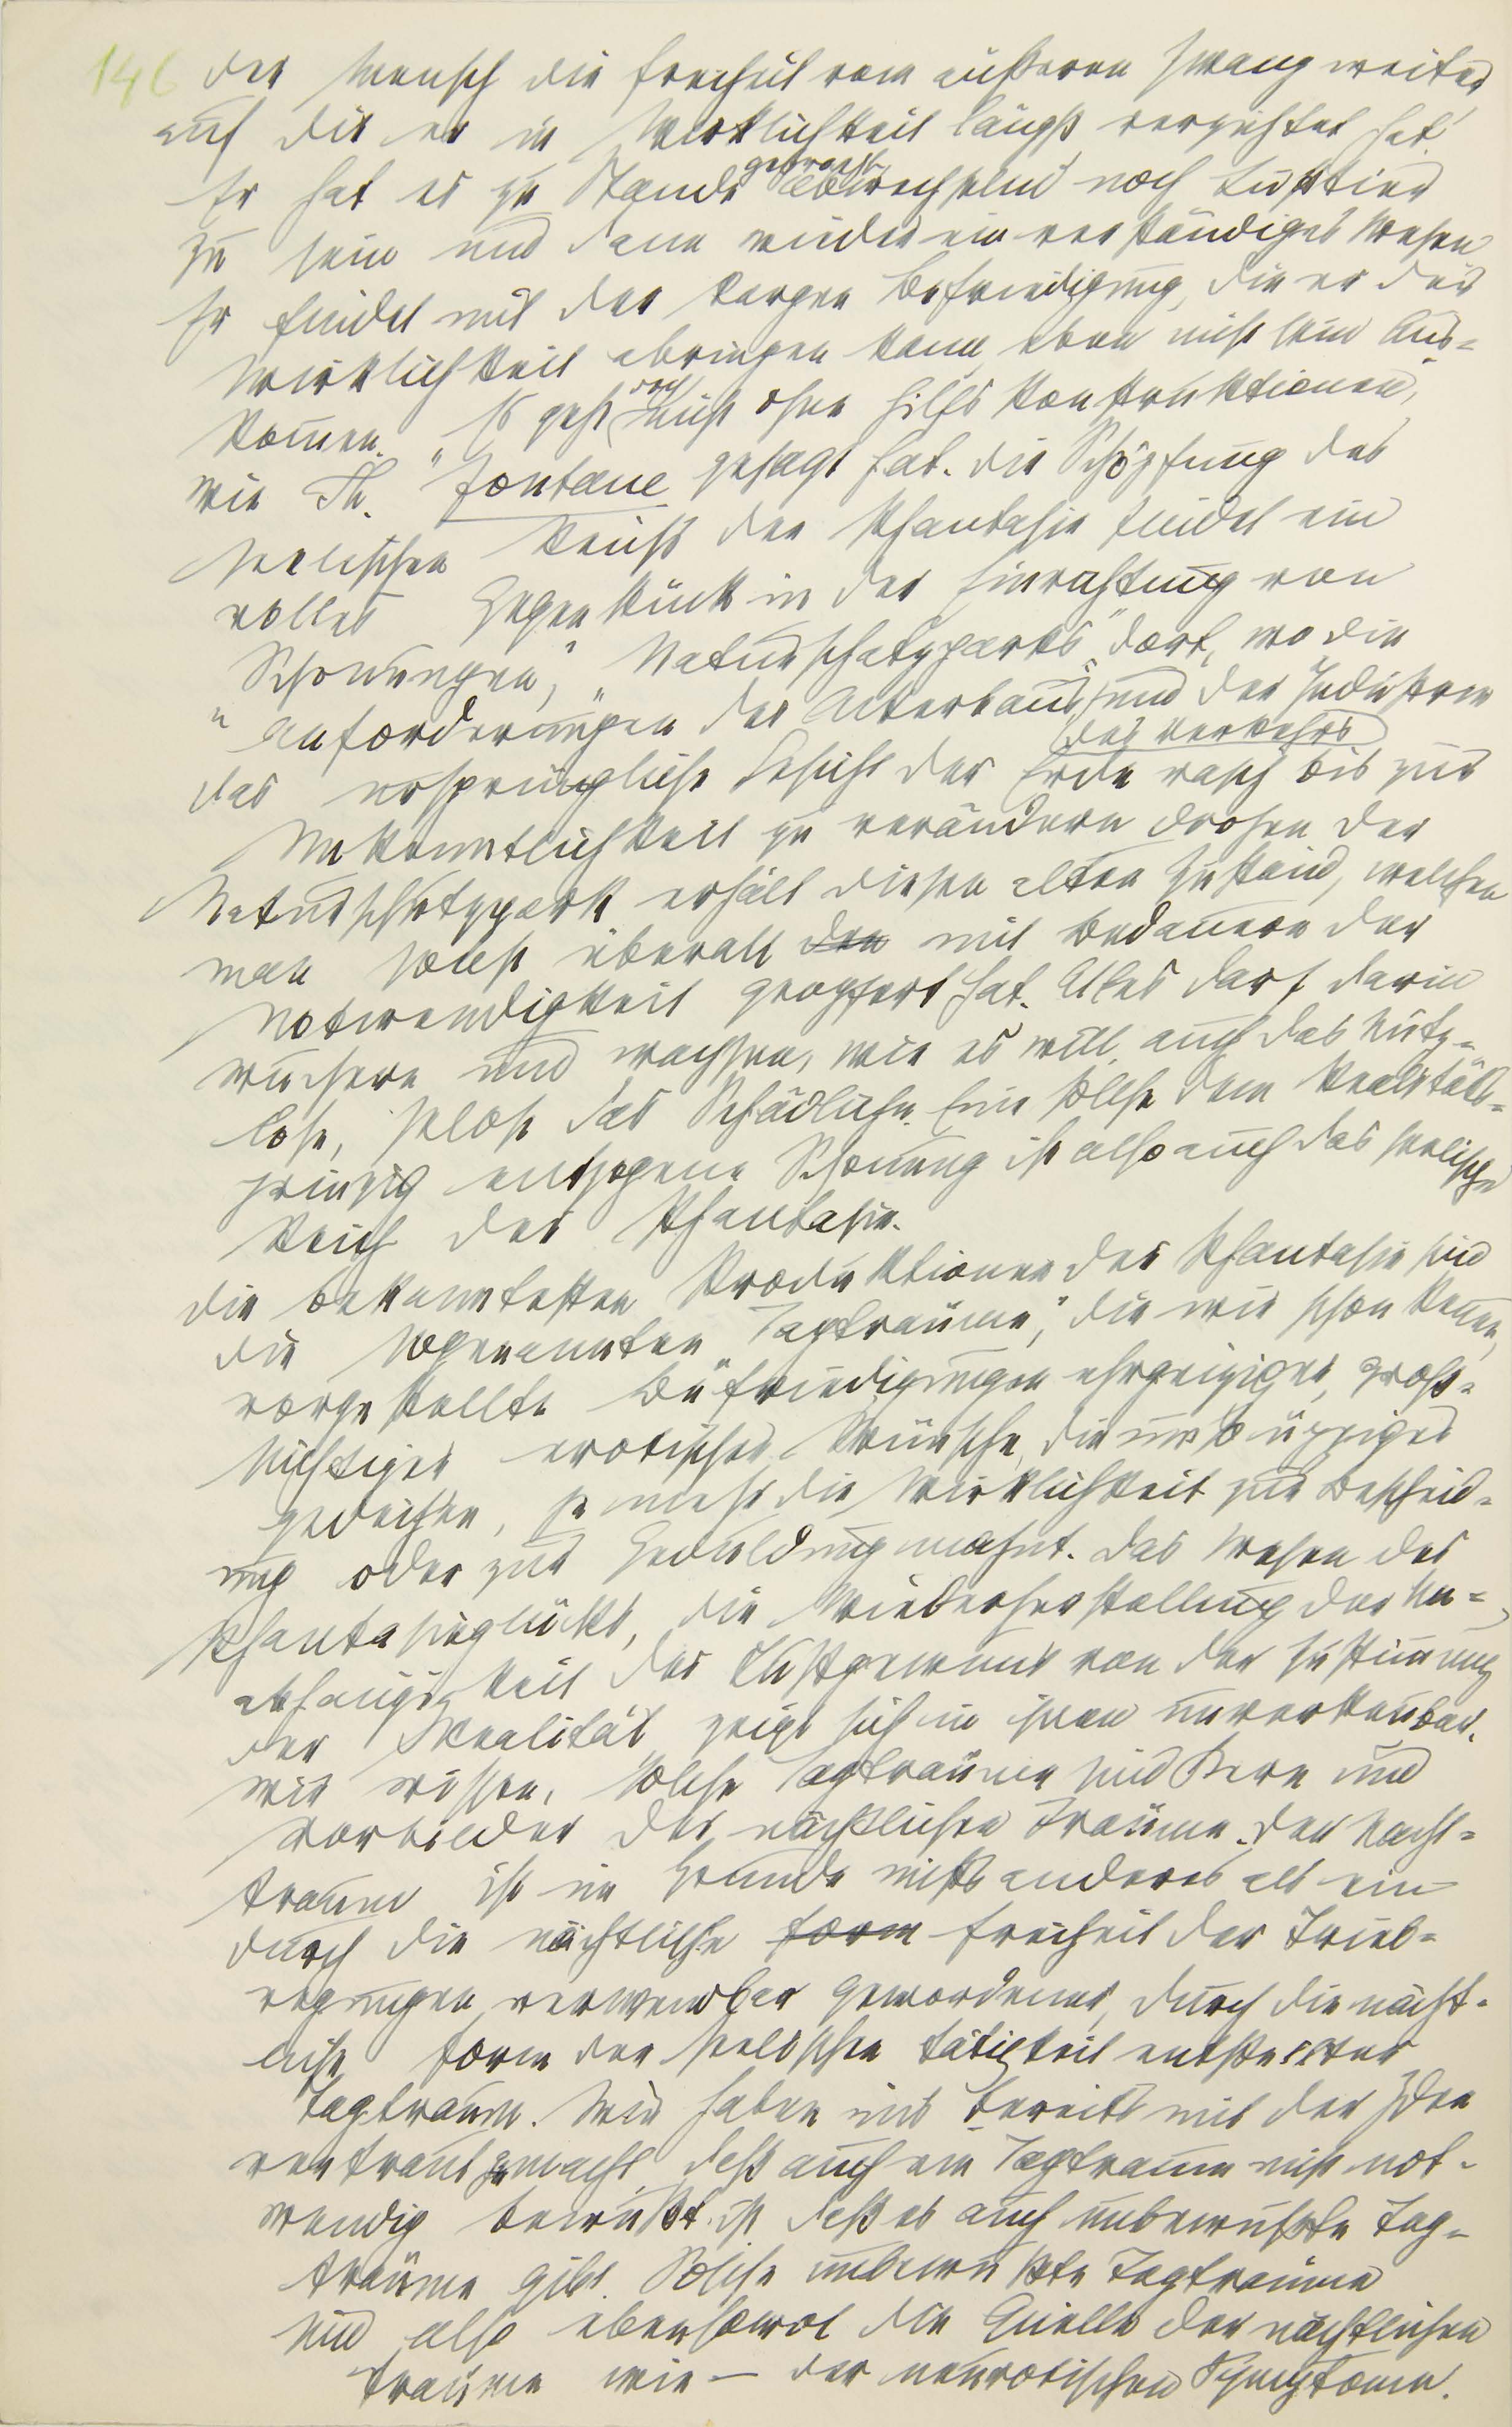 146 der Mensch die Freiheit vom äußeren Zwang weiter
auf die er in Wirklichkeit längst verzichtet hat.
Er hat es zu Stande gebracht abwechselnd noch Lusttier
zu sein und dann wieder ein verständiges Wesen
Er findet mit der kargen Befriedigung, die er der
Wirklichkeit abringen kann eben nicht sein Aus=
kommen. „Es geht doch nicht ohne Hilfskonstruktionen,
wie Th. Fontane gesagt hat. Die Schöpfung des
seelischen Reichs der Phantasie findet ein
volles Gegenstück in der Einrichtung von
„Schonungen," „Naturschutzparks" dort, wo die
Anforderungen des Ackerbaus, des Verkehrs und der Industrie
das ursprüngliche Gesicht der Erde rasch bis zur
Unkenntlichkeit zu verändern drohen. Der
Naturschutzpark erhält diesen alten Zustand, welchen
man sonst überall den mit Bedauern der
Notwendigkeit geopfert hat. Alles darf darin
wuchern und wachsen, wie es will, auch das Nutz=
lose, selbst das Schädliche. Eine solche dem Realitäts=
prinzip entzogene Schonung ist also auch das seelische
Reich der Phantasie.
Die bekanntesten Produktionen der Phantasie sind
die sogenannten „Tagträume," die wir schon kennen,
vorgestellte Befriedigungen ehrgeiziger, groß=
süchtiger erotischer Wünsche, die umso üppiger
gedeihen, je mehr die Wirklichkeit zur Bescheid=
ung oder zur Geduldung mahnt. Das Wesen des
Phantasieglücks, die Wiederherstellung der Un=
abhängigkeit des Lustgewinns von der Zustimmung
der Realität zeigt sich in ihnen unverkennbar.
Wir wissen, solche Tagträume sind Kern und
Vorbilder der nächtlichen Träume. Der Nacht=
traum ist im Grunde nichts anderes als ein
durch die nächtliche Form Freiheit der Trieb=
regungen verwendbar gewordener, durch die nächt=
liche Form der seelischen Tätigkeit entstellter
Tagtraum. Wir haben uns bereits mit der Idee
vertraut gemacht, daß auch ein Tagtraum nicht not=
wendig bewußt ist daß es auch unbewußte Tag=
träume gibt. Solche unbewußte Tagträume
sind also ebensowol die Quelle der nächtlichen
Träume wie – der neurotischen Symptome.